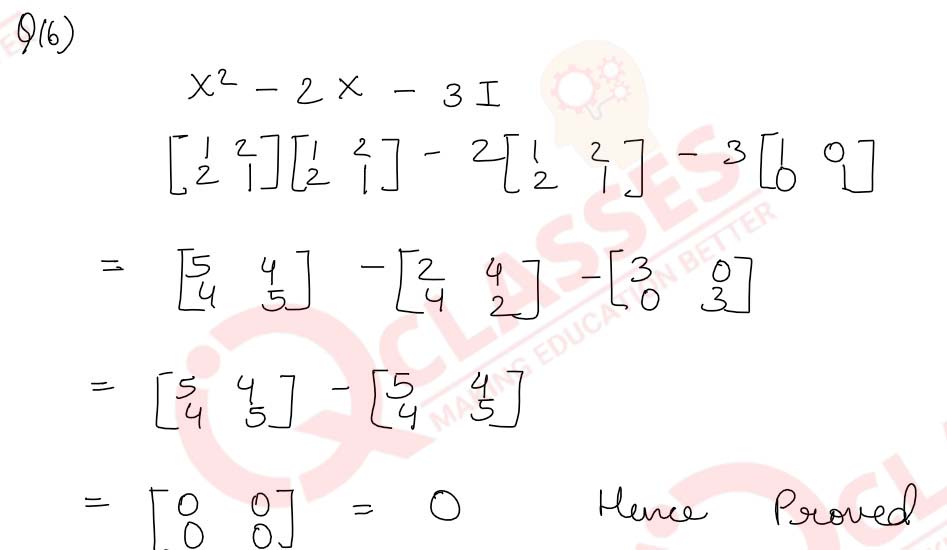 Q(6)
X² - 2X - 3I
[1 2 2 1] [1 2 2 1] - 2 [1 2 2 1] - 3 [1 0 0 1]
= [5 4 4 5] - [2 4 4 2] - [3 0 0 3]
= [5 4 4 5] - [5 4 4 5]
= [0 0 0 0] = 0 Hence Proved
CLASSES
MAKING EDUCATION BETTER
CLA